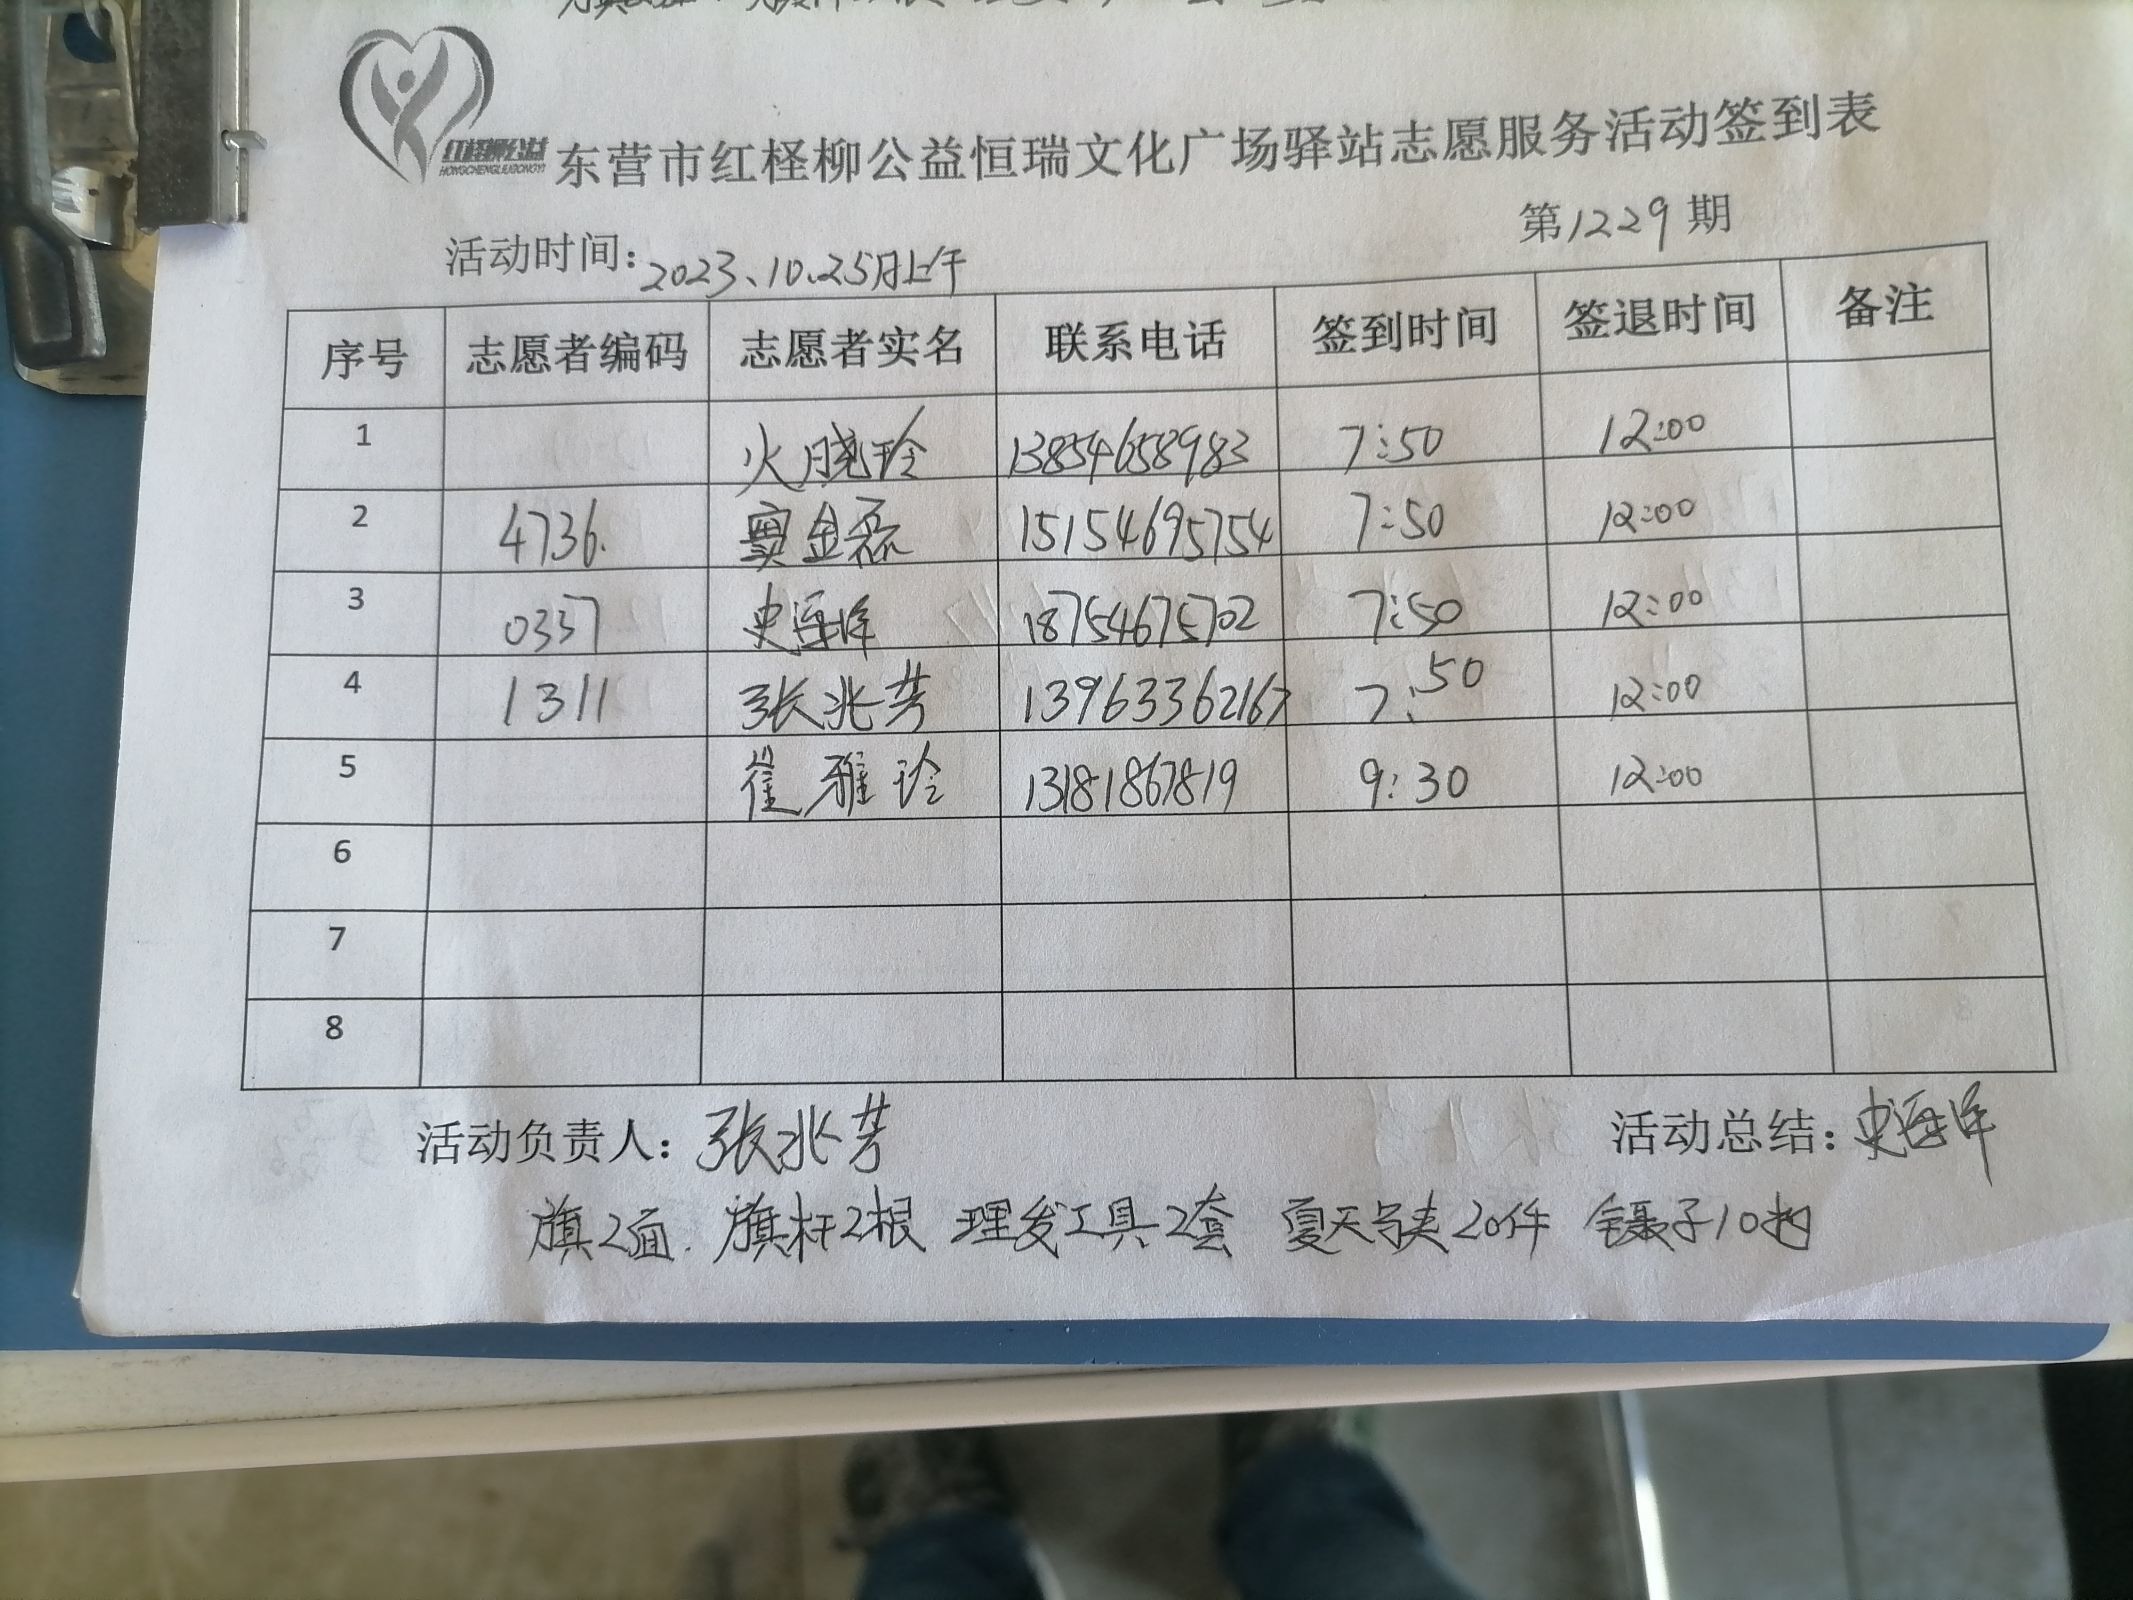 红柽柳公益
HONGCHENGLIUGONGYI
东营市红柽柳公益恒瑞文化广场驿站志愿服务活动签到表
第1229期
活动时间:2023、10.25月上午
序号 志愿者编码 志愿者实名 联系电话 签到时间 签退时间 备注
1 火晓玲 13854658983 7:50 12:00
2 4736. 窦金磊 15154695754 7:50 12:00
3 0337 史连峰 18754675702 7:50 12:00
4 1311 张兆芳 13963362167 7:50 12:00
5 崔雅玲 13181867819 9:30 12:00
6
7
8
活动负责人:张兆芳 活动总结:史连峰
旗2面. 旗杆2根 理发工具2套 夏天马夹20件 镊子10把